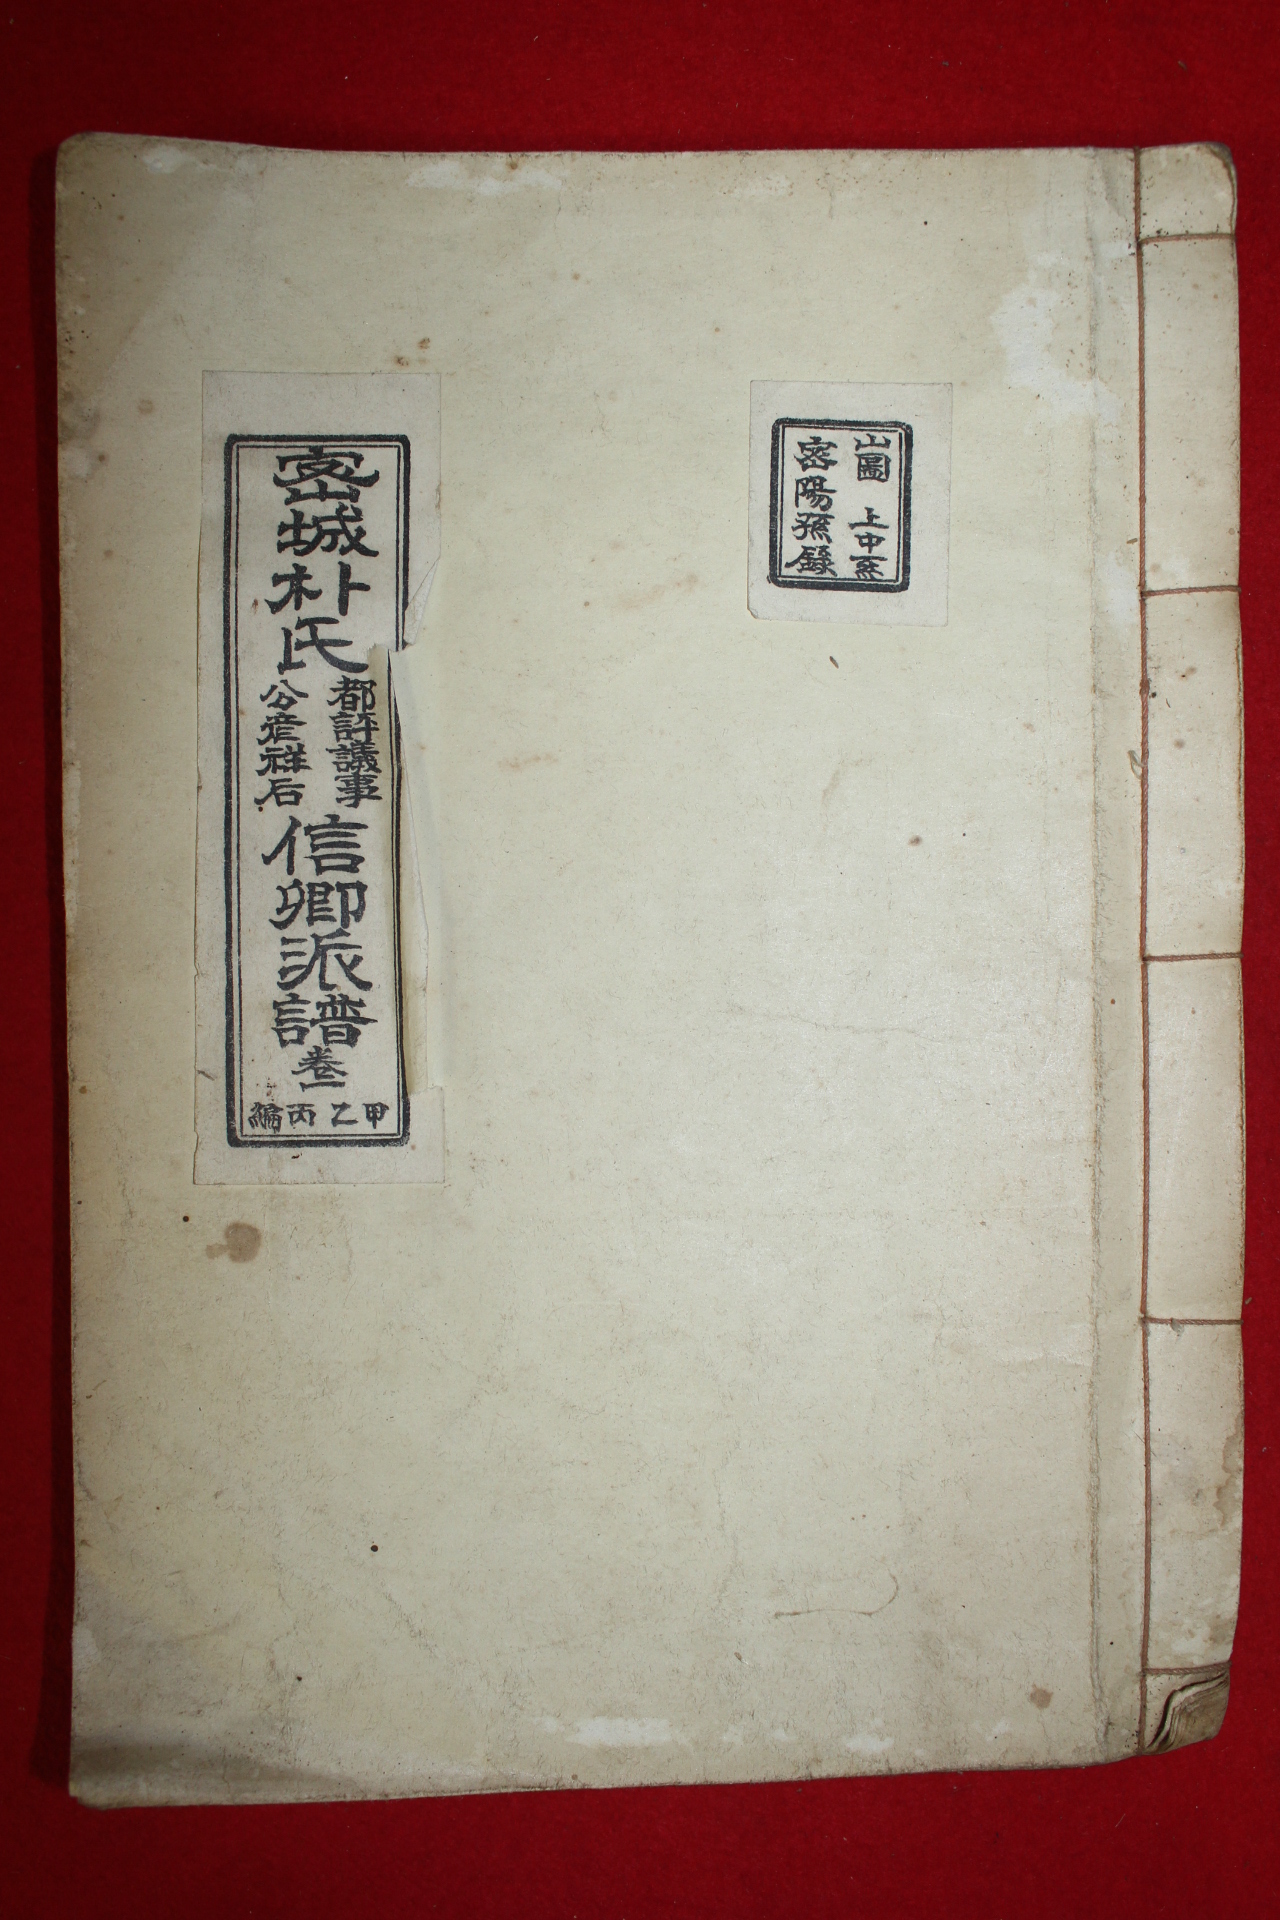 山圖 上中系
密陽孫錄
密城朴氏
都評議事
公彦祥后
信卿派譜
卷一
甲乙丙編